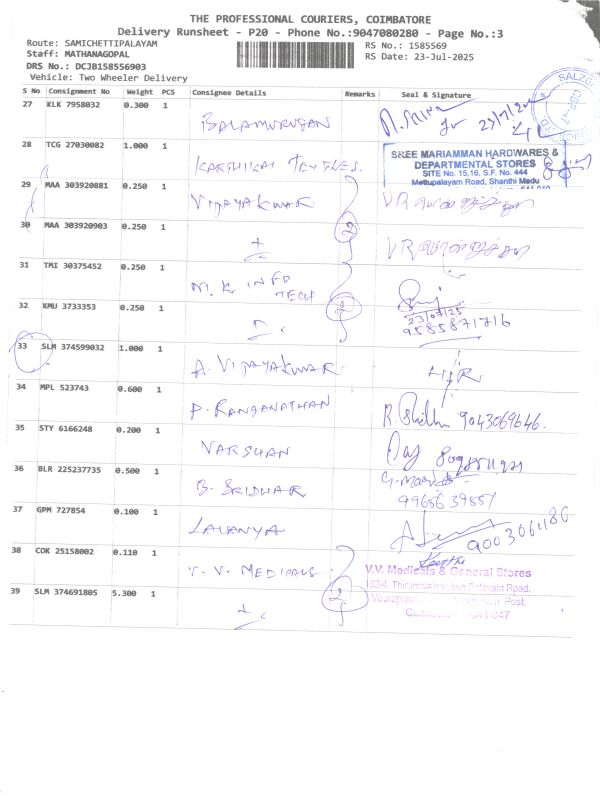 THE PROFESSIONAL COURIERS, COIMBATORE
Delivery Runsheet - P20 - Phone No.:9047080280 - Page No.:3
Route: SAMICHETTIPALAYAM
RS No.: 1585569
Staff: MATHANAGOPAL
RS Date: 23-Jul-2025
DRS No.: DCJB158556903
Vehicle: Two Wheeler Delivery
S No Consignment No Weight PCS Consignee Details Remarks Seal & Signature
27 KLK 7958032 0.300 1 BALAMURUGAN
28 TCG 27030082 1.000 1 KARTHIKAI TEXTILES.
SREE MARIAMMAN HARDWARES &
DEPARTMENTAL STORES
SITE No. 15,16, S.F. No. 444
Mettupalayam Road, Shanthi Medu
29 MAA 303920881 0.250 1 VIJAYAKUMAR 2
30 MAA 303920903 0.250 1
31 TMI 30375452 0.250 1 M.K. INFO TECH 2
23/07/25
9585871716
32 KMU 3733353 0.250 1
33 SLM 374599032 1.000 1 A. VIJAYAKUMAR
34 MPL 523743 0.600 1 P. RANGANATHAN 9043069646.
35 STY 6166248 0.200 1 VARSHAN
36 BLR 225237735 0.500 1 B. SRIDHAR
37 GPM 727854 0.100 1 LAVANYA 9003061186
38 COK 25158002 0.110 1 V. V. MEDICALS 2
V.V. Medicals & General Stores
39 SLM 374691805 5.300 1